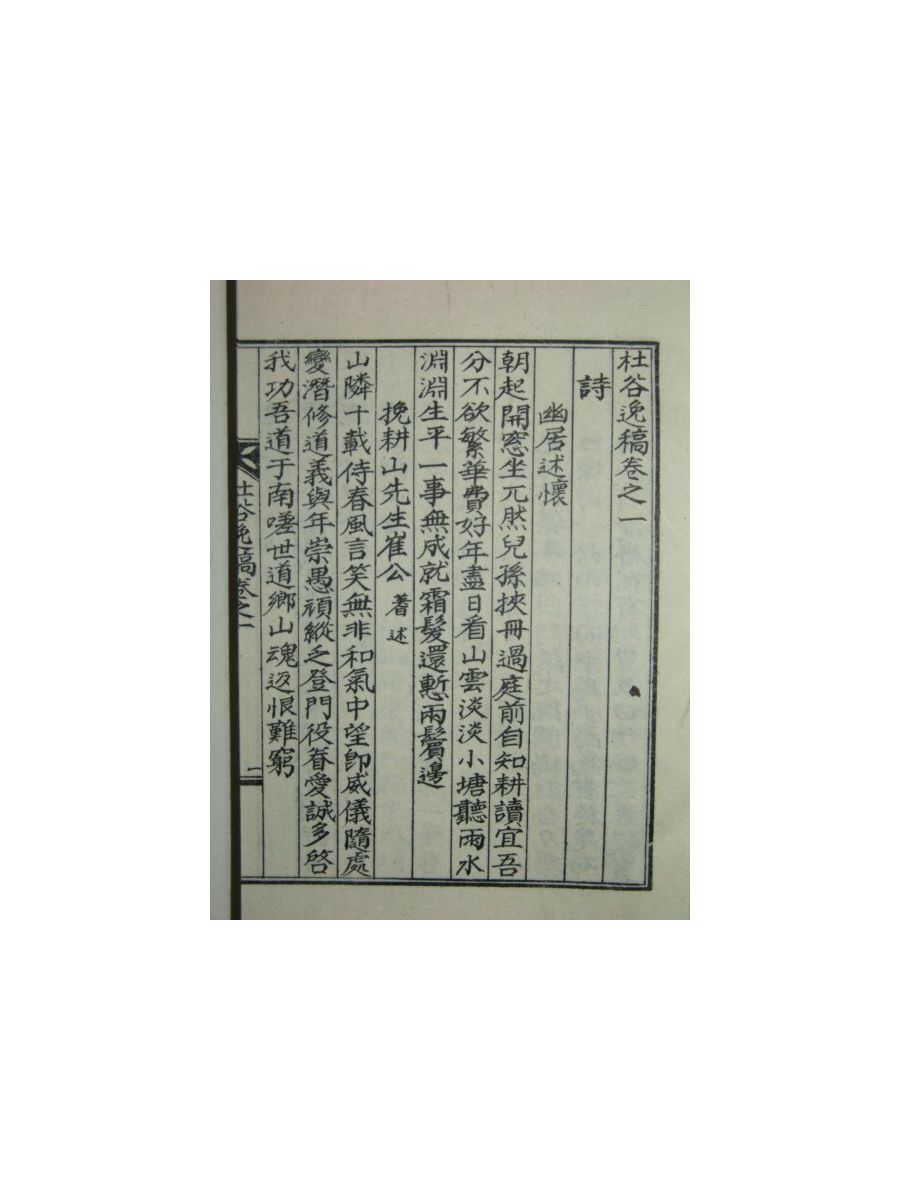 杜谷逸稿卷之一
詩
幽居述懷
朝起開窓坐兀然兒孫挾冊過庭前自知耕讀宜吾
分不欲繁華費好年盡日看山雲淡淡小塘聽雨水
淵淵生平一事無成就霜髮還慙兩鬢邊
挽耕山先生崔公 著述
山隣十載侍春風言笑無非和氣中望卽威儀隨處
變潛修道義與年崇愚頑縱乏登門役眷愛誠多啓
我功吾道于南嗟世道鄉山魂返恨難窮
杜谷逸稿卷之一